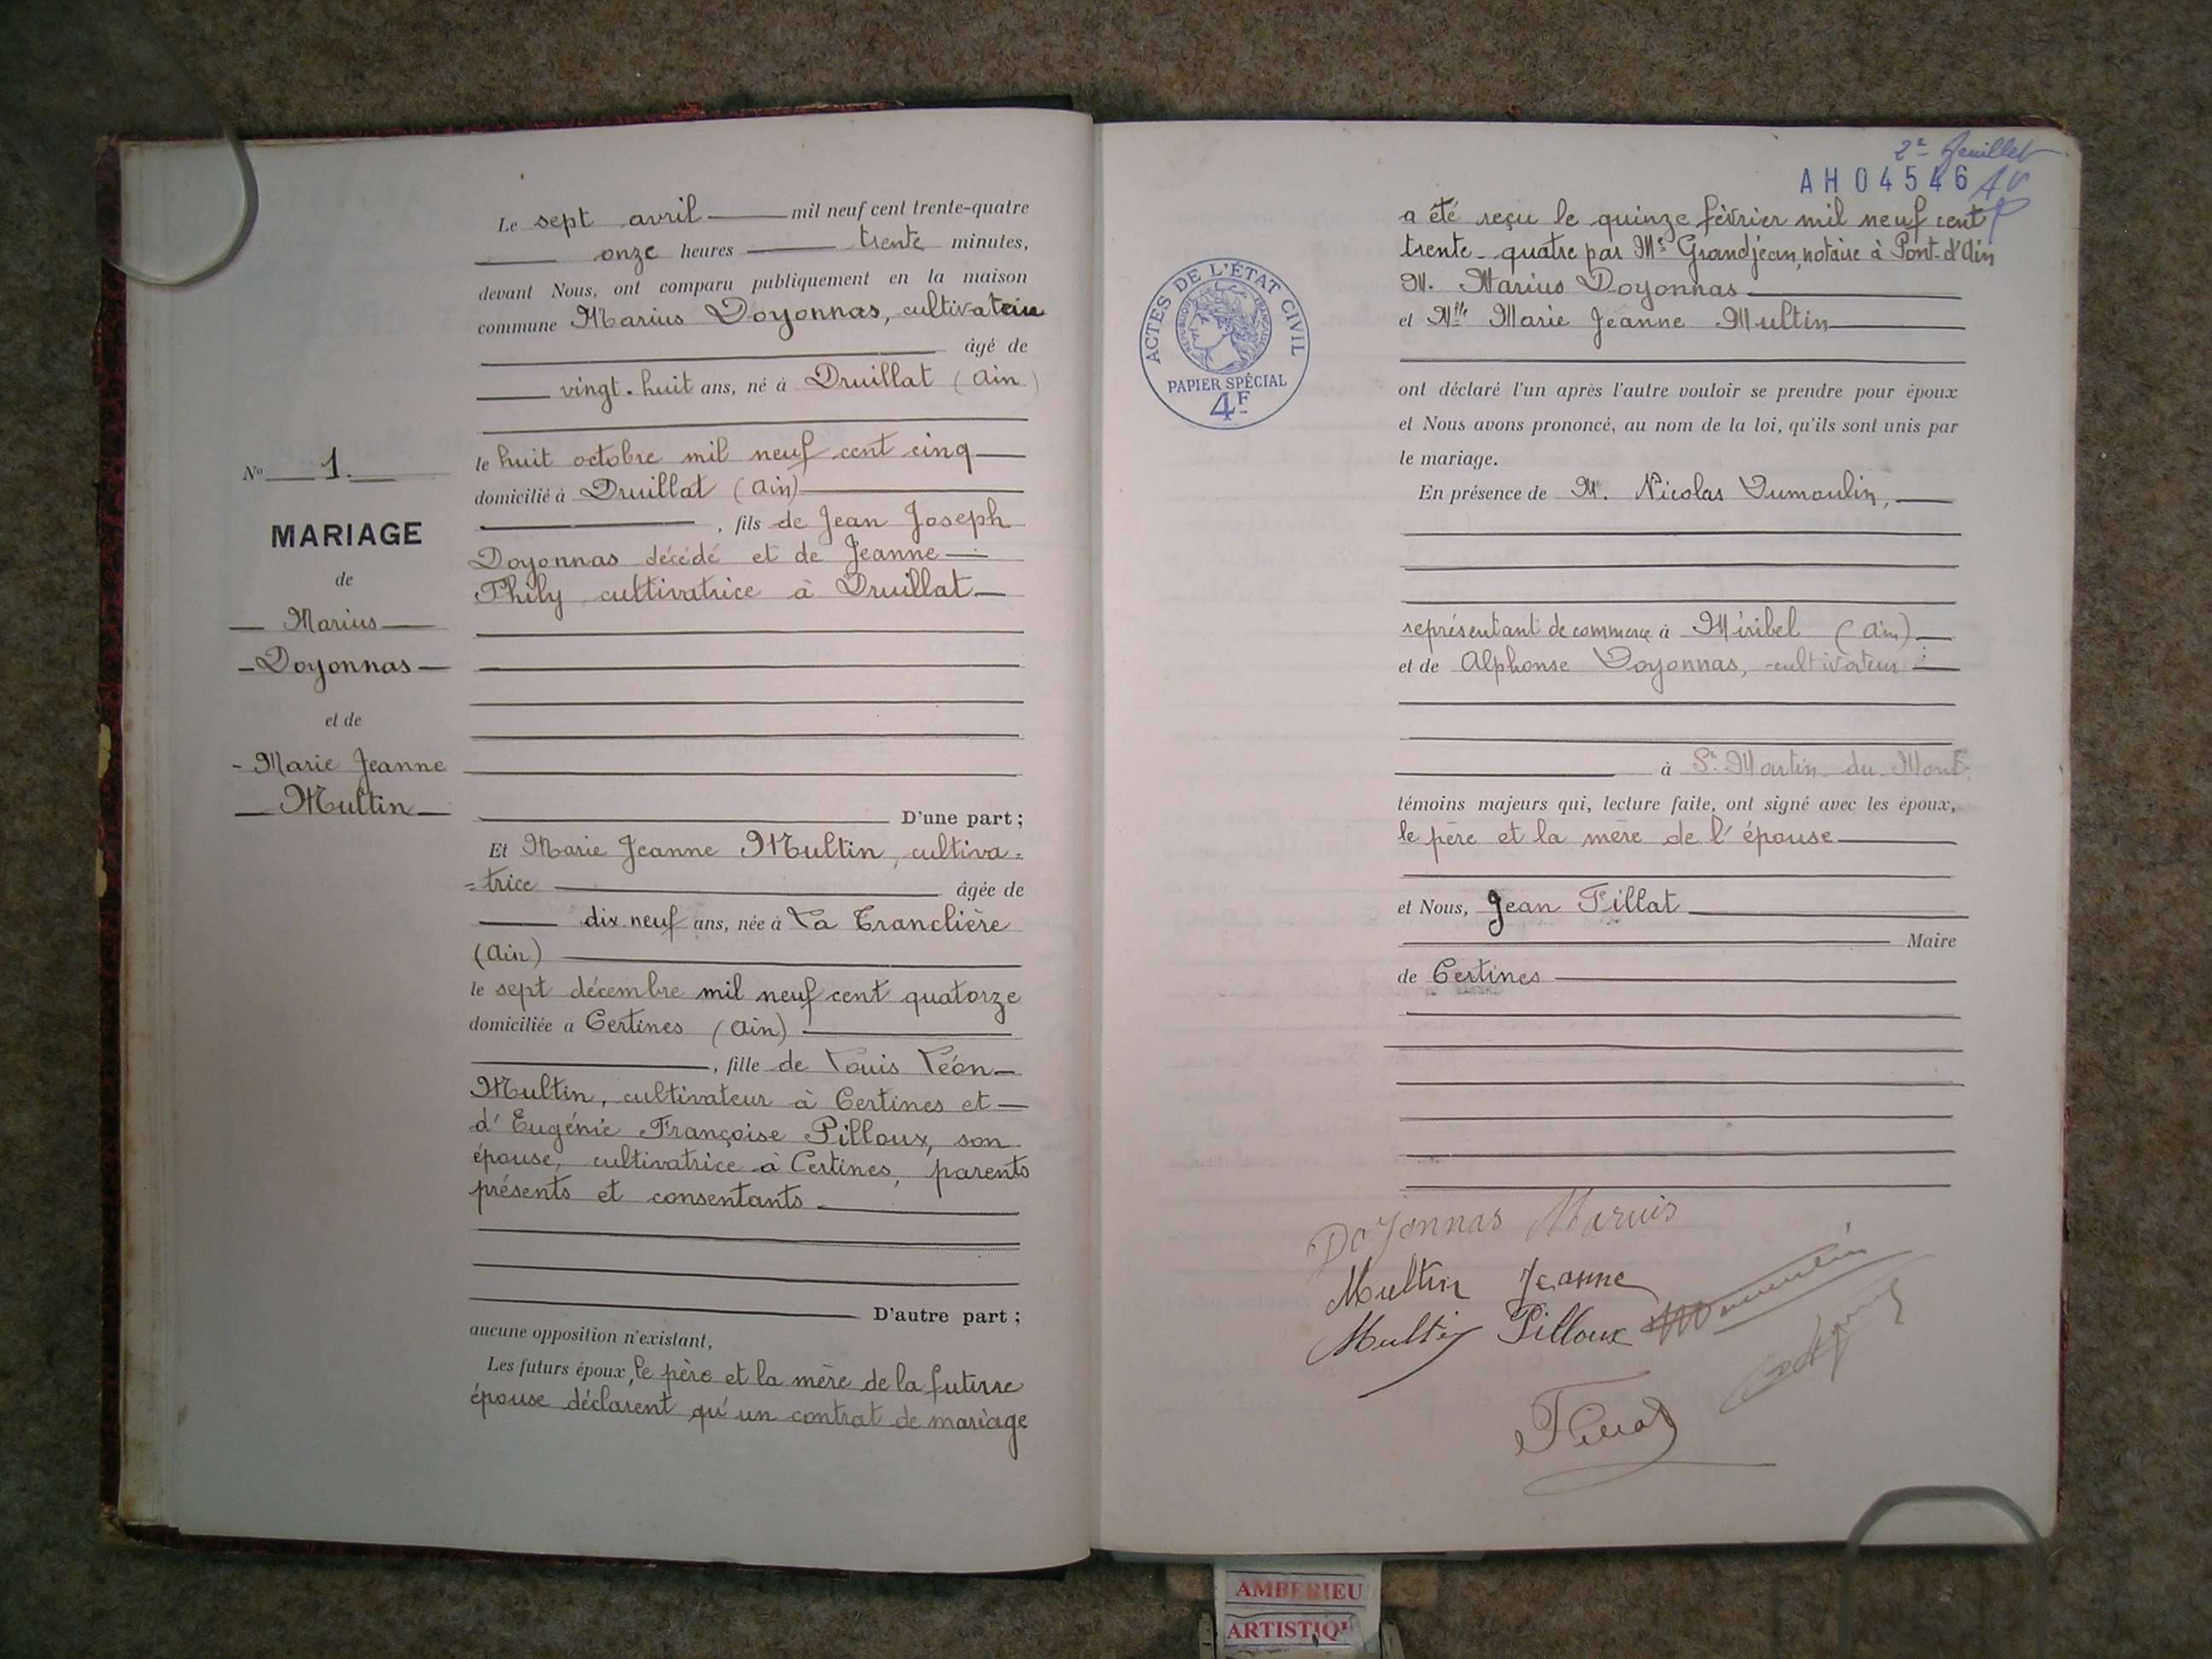 N° 1.
MARIAGE
de
Marius
Doyonnas
et de
Marie Jeanne
Multin
Le sept avril mil neuf cent trente-quatre
onze heures trente minutes,
devant Nous, ont comparu publiquement en la maison
commune Marius Doyonnas, cultivateur
âgé de
vingt-huit ans, né à Druillat (Ain)
le huit octobre mil neuf cent cinq
domicilié à Druillat (Ain)
, fils de Jean Joseph
Doyonnas décédé et de Jeanne
Phily cultivatrice à Druillat
D'une part ;
Et Marie Jeanne Multin, cultiva=
=trice âgée de
dix neuf ans, née à La Tranclière
(Ain)
le sept décembre mil neuf cent quatorze
domiciliée a Certines (Ain)
, fille de Louis Léon
Multin, cultivateur à Certines et
d'Eugénie Françoise Pilloux, son
épouse, cultivatrice à Certines, parents
présents et consentants
D'autre part ;
aucune opposition n'existant,
Les futurs époux, le père et la mère de la future
épouse déclarent qu'un contrat de mariage
2e feuillet
AH04546
a été reçu le quinze février mil neuf cent
trente-quatre par Me Grandjean, notaire à Pont-d'Ain
M. Marius Doyonnas
et Mlle Marie Jeanne Multin
ont déclaré l'un après l'autre vouloir se prendre pour époux
et Nous avons prononcé, au nom de la loi, qu'ils sont unis par
le mariage.
En présence de M. Nicolas Dumoulin,
représentant de commerce à Miribel (Ain)
et de Alphonse Doyonnas, cultivateur
à St Martin du Mont,
témoins majeurs qui, lecture faite, ont signé avec les époux,
le père et la mère de l'épouse
et Nous, Jean Fillat
Maire
de Certines
ACTES DE L'ÉTAT CIVIL
RÉPUBLIQUE FRANÇAISE
PAPIER SPÉCIAL
4F
Doyonnas Marius
Multin Jeanne
Multin Pilloux Dumoulin
Fillat
AMBERIEU
ARTISTIQU